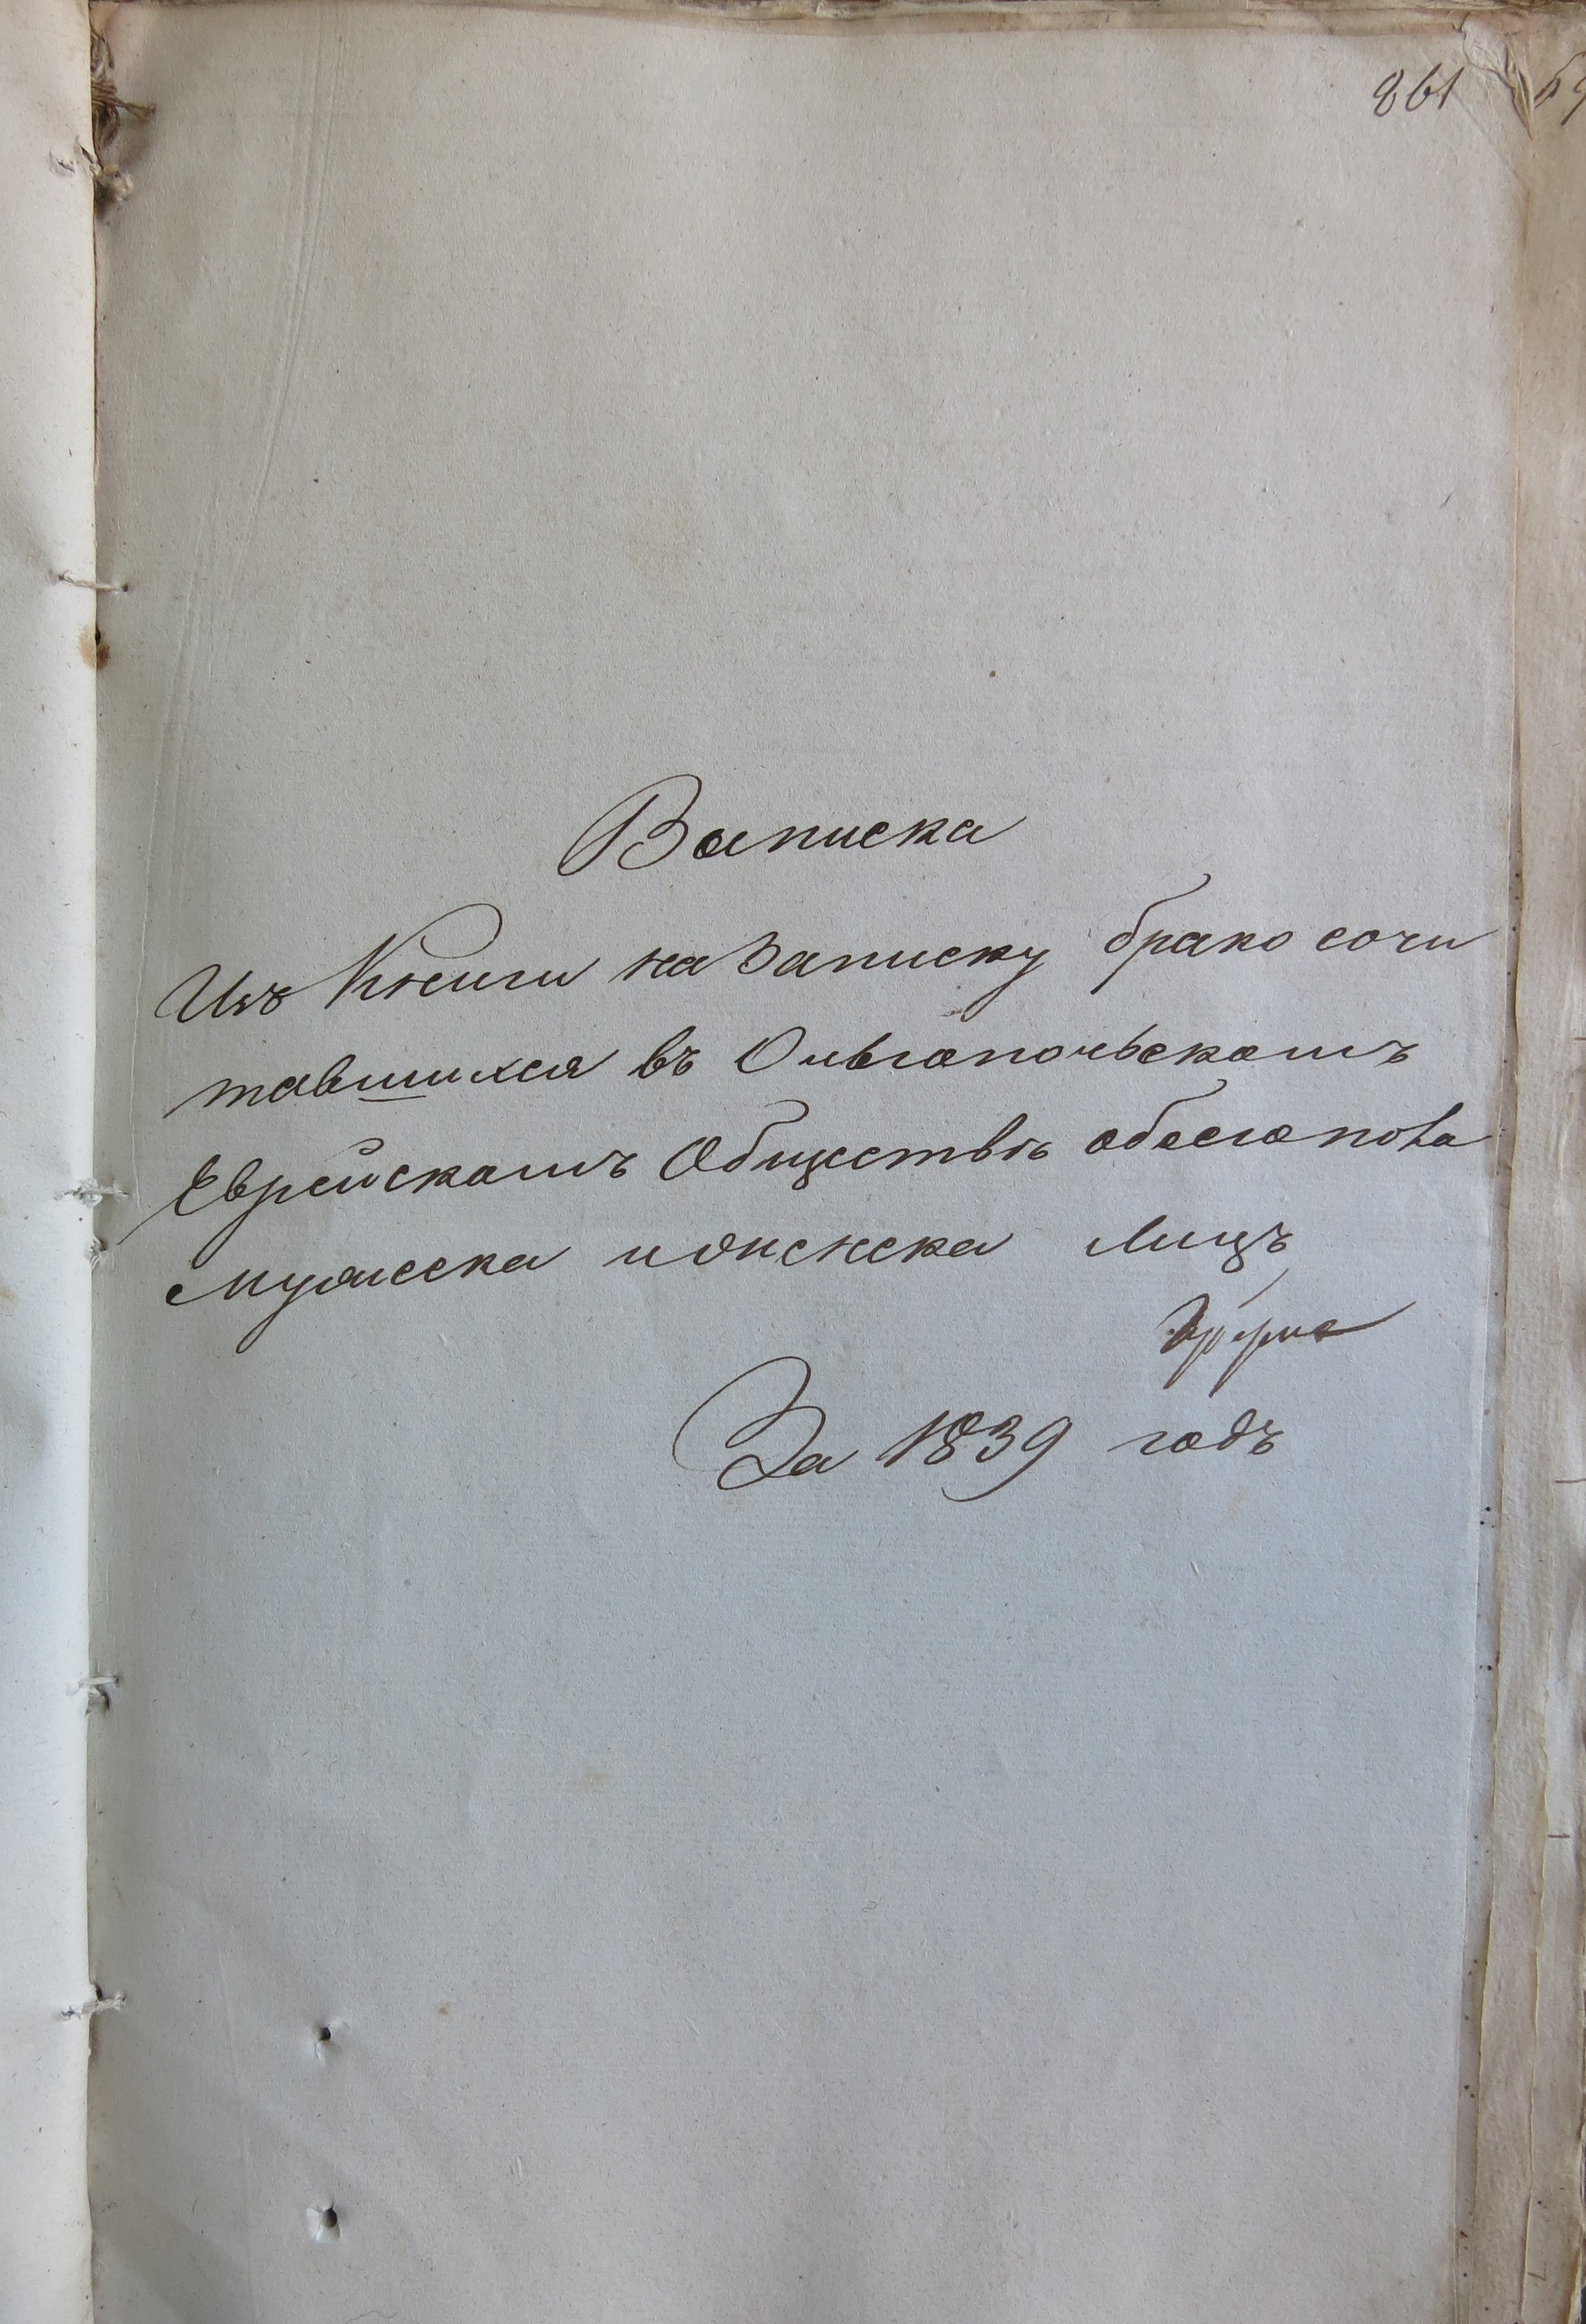 861
Выписка
Изъ Книги на Записку брако сочи
тавшихся въ Ольгопольскомъ
Еврейскомъ Обществѣ обоего пола
мужеска и женска лицъ
За 1839 годъ